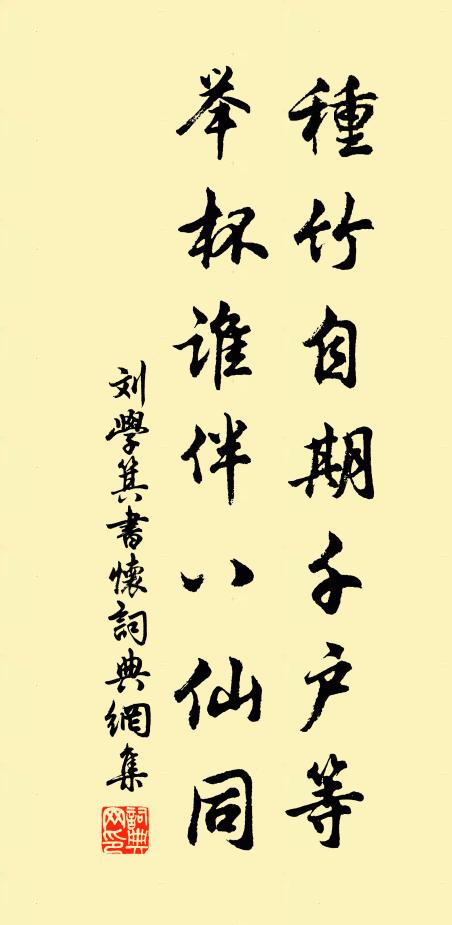 種竹自期千户等
举杯谁伴八仙同
刘學箕書懷詞典網集
詞典網印